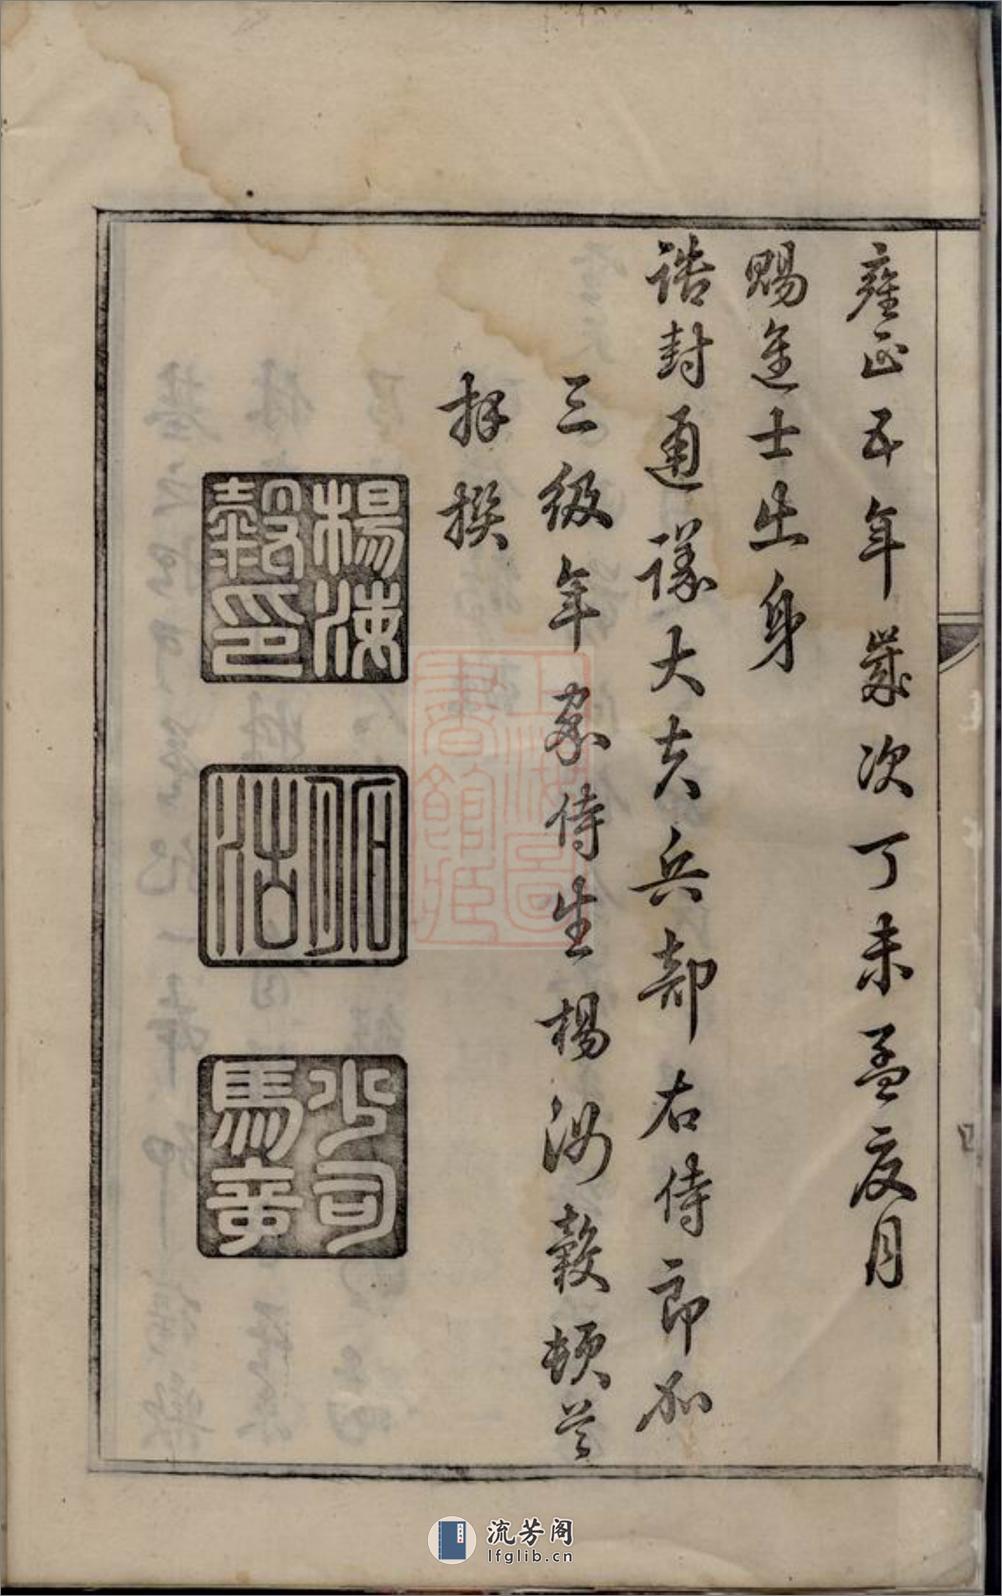 雍正五年歲次丁未孟夏月
賜進士出身
誥封通議大夫兵部右侍郎加
三級年家侍生楊汝穀頓首
拜撰
楊汝
穀印
少司
馬章
上海圖
書館藏
流芳阁
lfglib.cn